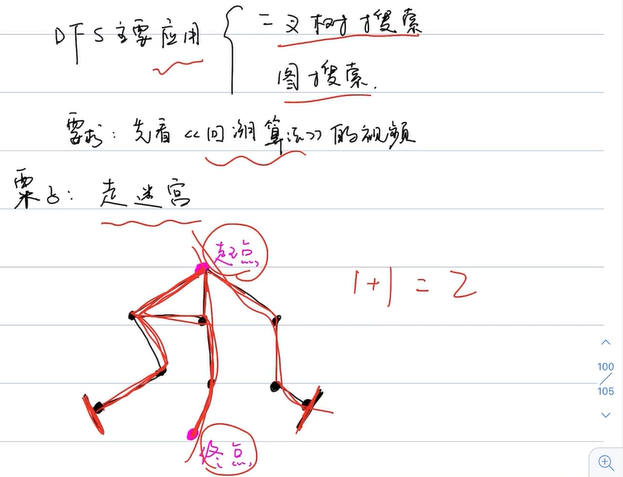 DFS主要应用
二叉树搜索
图搜索.
要求: 先看《回溯算法》的视频
栗子: 走迷宫
起点
1+1=2
终点
100
105